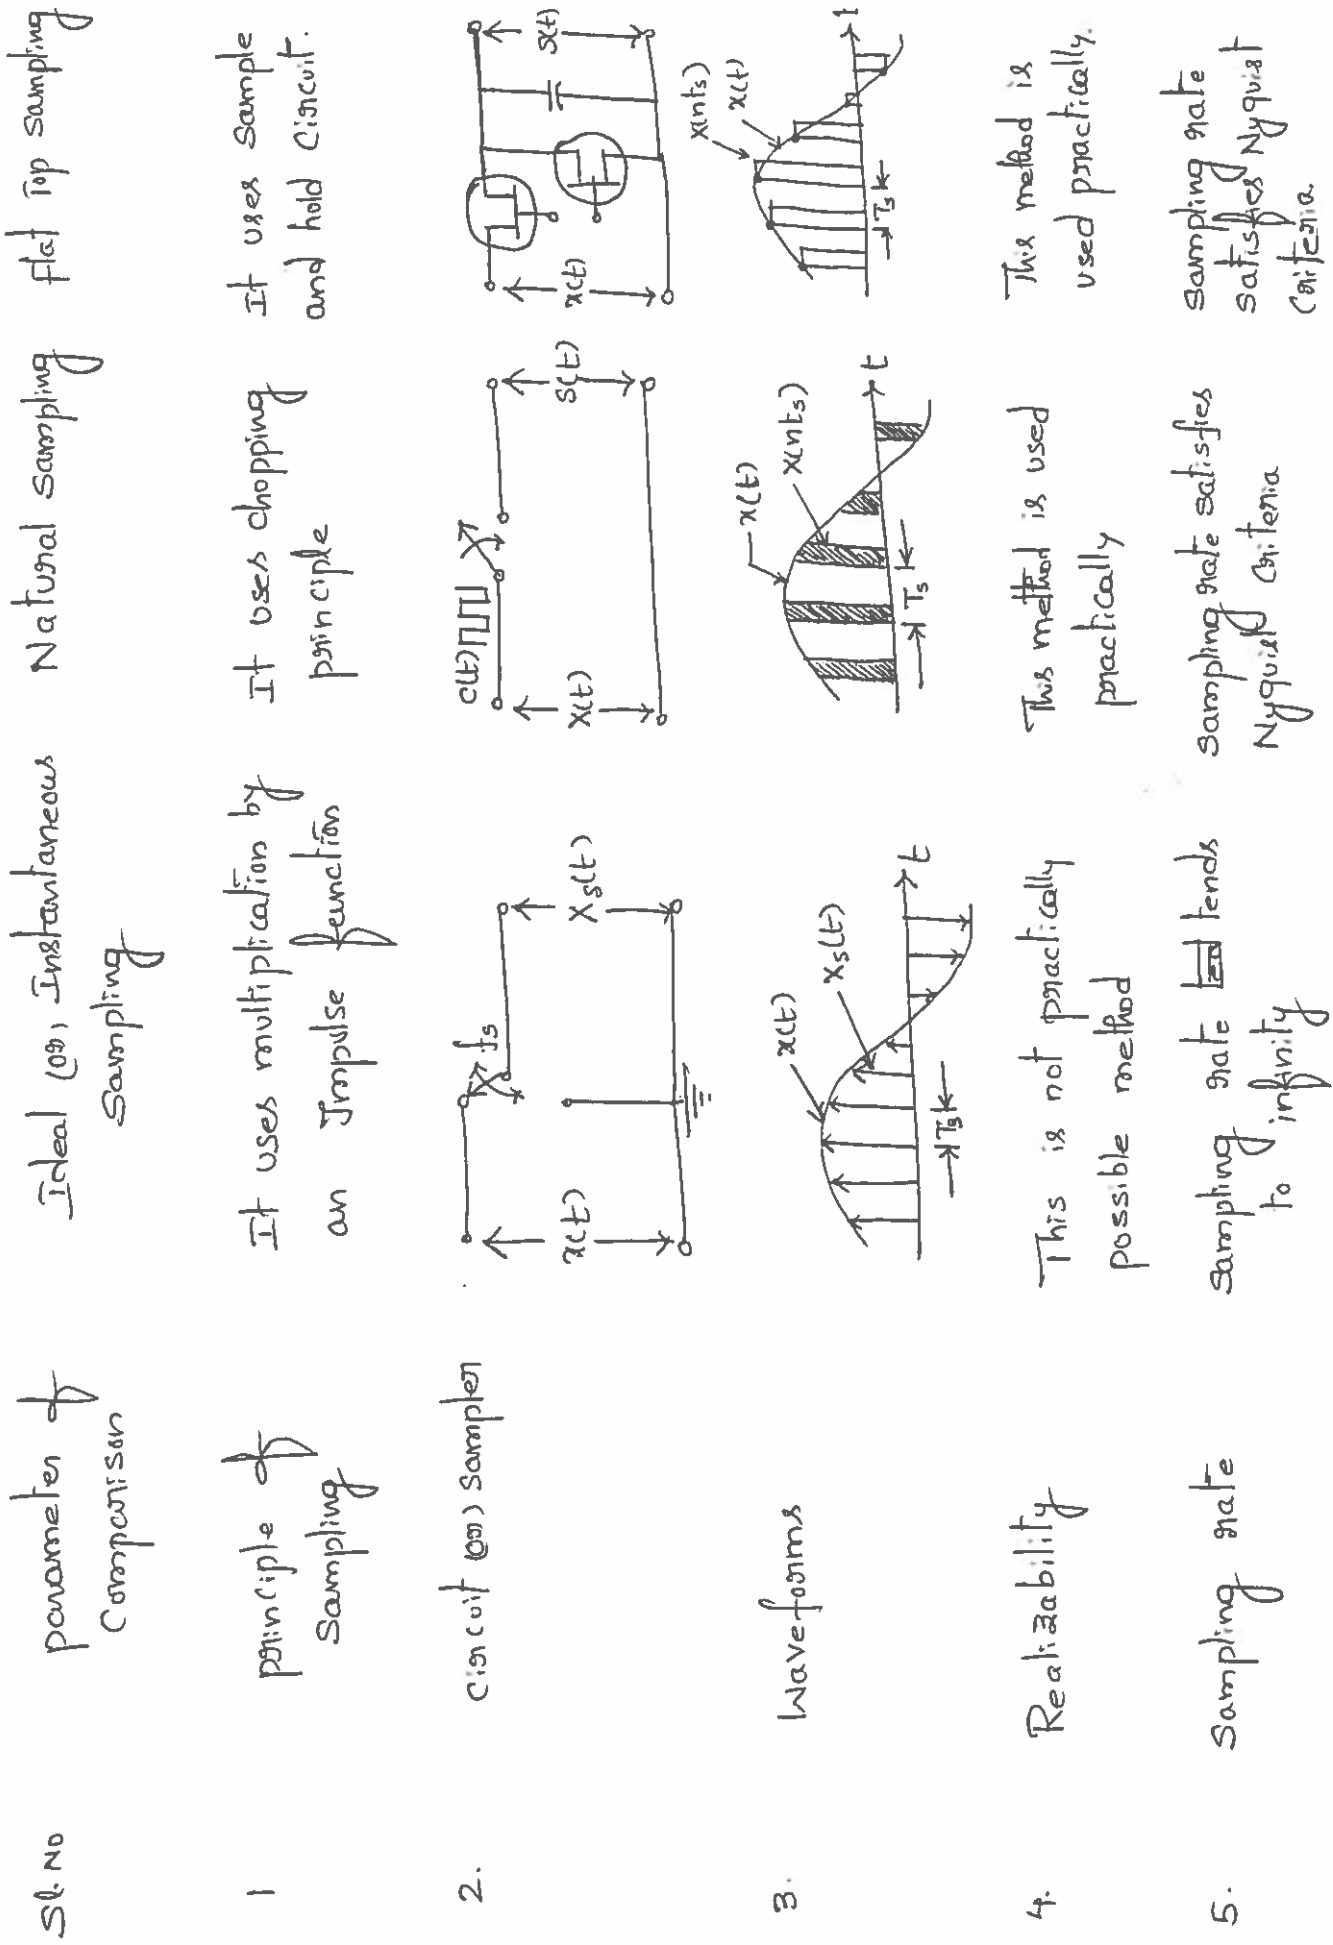 Sl. No
parameter of
Comparison
Ideal (or) Instantaneous
Sampling
Natural Sampling
flat Top sampling
1
principle of
Sampling
It uses multiplication by
an Impulse function
It uses chopping
principle
It uses sample
and hold Circuit.
2.
Circuit (or) Sampler
x(t)
fs
Xs(t)
X(t)
c(t)
S(t)
x(t)
S(t)
3.
Waveforms
x(t)
Xs(t)
Ts
t
x(t)
x(nts)
Ts
t
x(nts)
x(t)
Ts
t
4.
Realizability
This is not practically
possible method
This method is used
practically
This method is
used practically.
5.
Sampling rate
Sampling rate tends
to infinity
Sampling rate satisfies
Nyquist Criteria
Sampling rate
satisfies Nyquist
Criteria